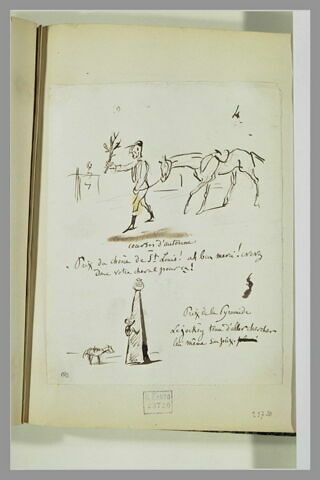 courses d'automne
Prix du chêne de St Louis! ah bon merci! c'est
donc votre cheval pour ça!
Prix de la Pyramide
Le jockey tenu d'aller chercher
lui même son prix